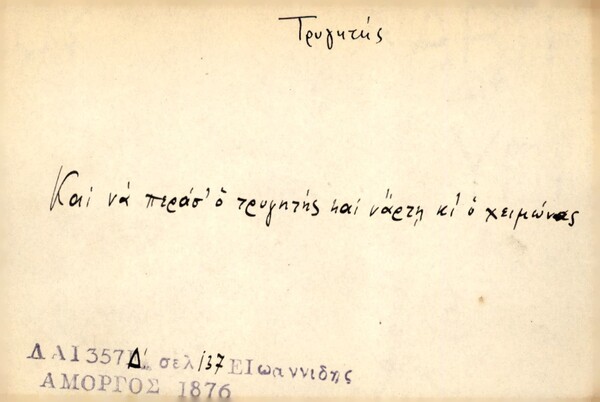 Τρυγητής
Καί νά περάσ' ὁ τρυγητής καί νἄρτῃ κι' ὁ χειμώνας
ΔΑΙ357 Δ' σελ 137 ΕΙωαννιδης
ΑΜΟΡΓΟΣ 1876